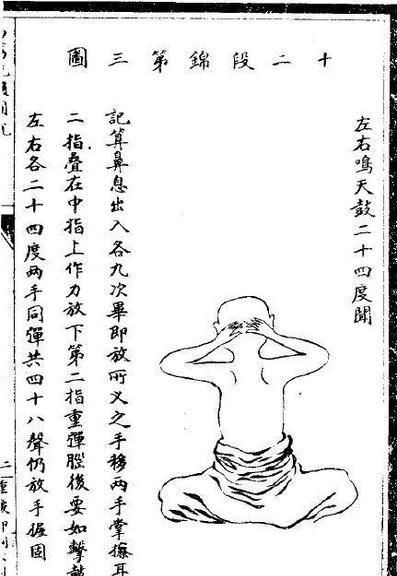 十二段錦第三圖
左右鳴天鼓二十四度聞
記算鼻息出入各九次畢即放所叉之手移兩手掌擦耳
二指疊在中指上作力放下第二指重彈腦後要如擊鼓
左右各二十四度兩手同彈共四十八聲仍放手握固